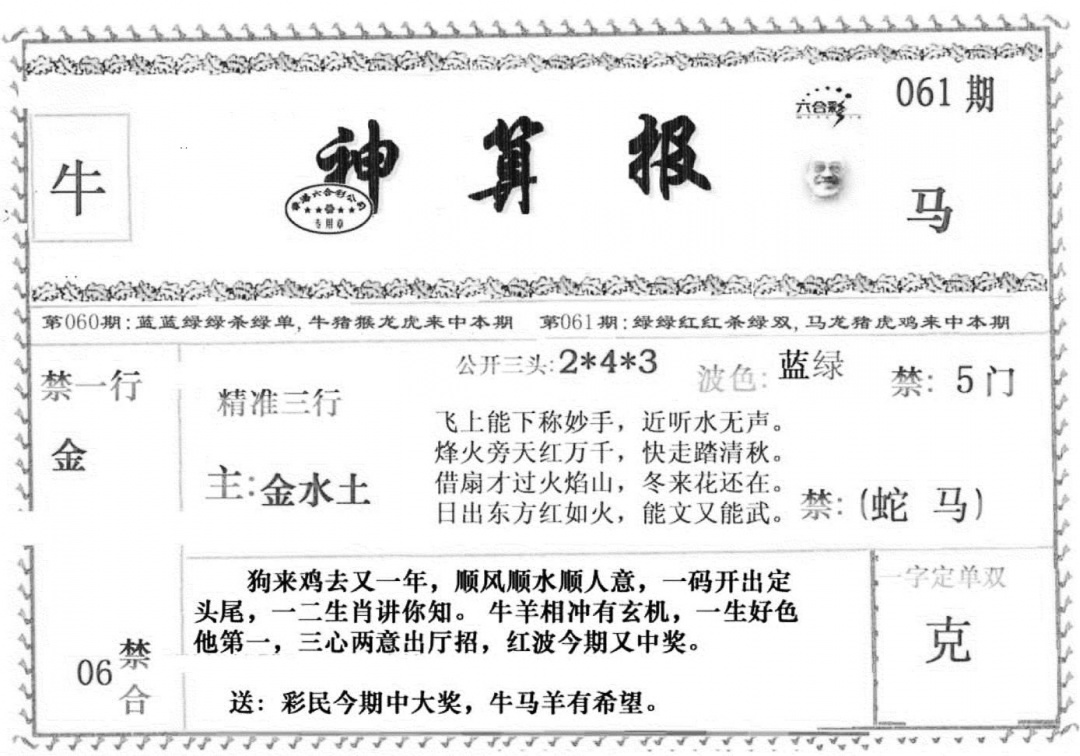 061期
六合彩
牛
神算报
香港六合彩公司
专用章
马
第060期:蓝蓝绿绿杀绿单,牛猪猴龙虎来中本期 第061期:绿绿红红杀绿双,马龙猪虎鸡来中本期
禁一行
金
精准三行
主:金水土
公开三头:2*4*3
波色:蓝绿
禁: 5门
飞上能下称妙手，近听水无声。
烽火旁天红万千，快走踏清秋。
借扇才过火焰山，冬来花还在。
日出东方红如火，能文又能武。
禁:(蛇 马)
06禁合
狗来鸡去又一年，顺风顺水顺人意，一码开出定
头尾，一二生肖讲你知。牛羊相冲有玄机，一生好色
他第一，三心两意出厅招，红波今期又中奖。
送：彩民今期中大奖，牛马羊有希望。
一字定单双
克